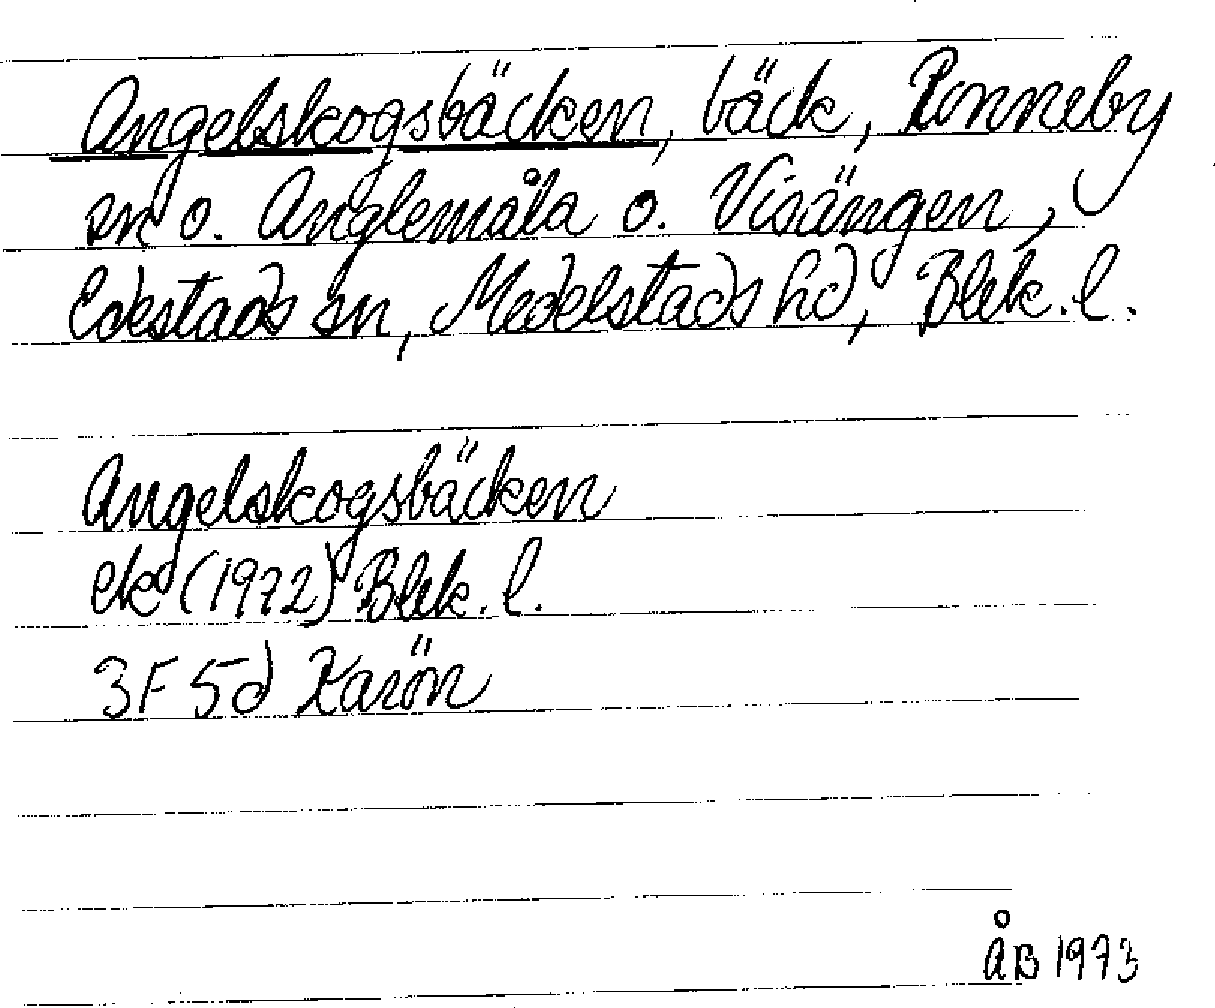 Angelskogsbäcken, bäck, Ronneby
sn o. Anglemåla o. Visängen,
Edestads sn, Medelstads hd, Blek. l.
Angelskogsbäcken
ek (1972) Blek. l.
3F 5d Karön
ÅB 1973